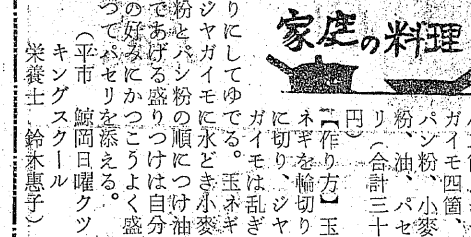 家庭の料理
ガイモ四箇、
パン粉、小麥
粉、油、パセ
リ(合計三十
円)
【作り方】玉
ネギを輪切り
に切り、ジヤ
ガイモは乱ぎ
りにしてゆでる。玉ネギ
ジヤガイモに水どき小麥
粉とパン粉の順につけ油
であげる盛りつけは自分
の好みにかつこうよく盛
つてパセリを添える。
(平市 鯨岡日曜クツ
キングスクール
栄養士 鈴木惠子)